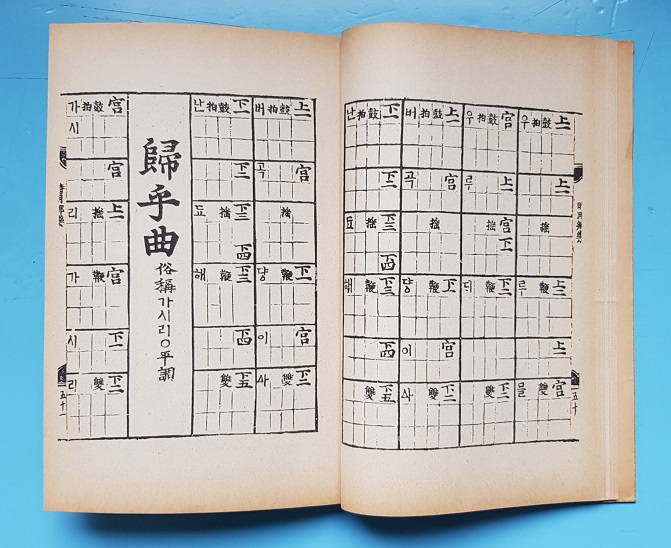 上一 上一 上一 上一 宮
鼓 搖 鞭 雙
拍
우 루 믈
宮 上一 宮 下一 下二 下二
鼓 搖 鞭 雙
拍
우 루 디
上一 宮 下一 宮 下二
鼓 搖 鞭 雙
拍
버 곡 댱 이 사
下二 下二 下三 下四 下三 下四 下五
鼓 搖 鞭 雙
拍
난 됴 해
五十
上一 宮 下一 宮 下二
鼓 搖 鞭 雙
拍
버 곡 댱 이 사
下二 下二 下三 下四 下三 下四 下五
鼓 搖 鞭 雙
拍
난 됴 해
歸乎曲
俗稱가시리○平調
宮 宮 上一 宮 下一 下二
鼓 搖 鞭 雙
拍
가시 리 가 시 리
五十一